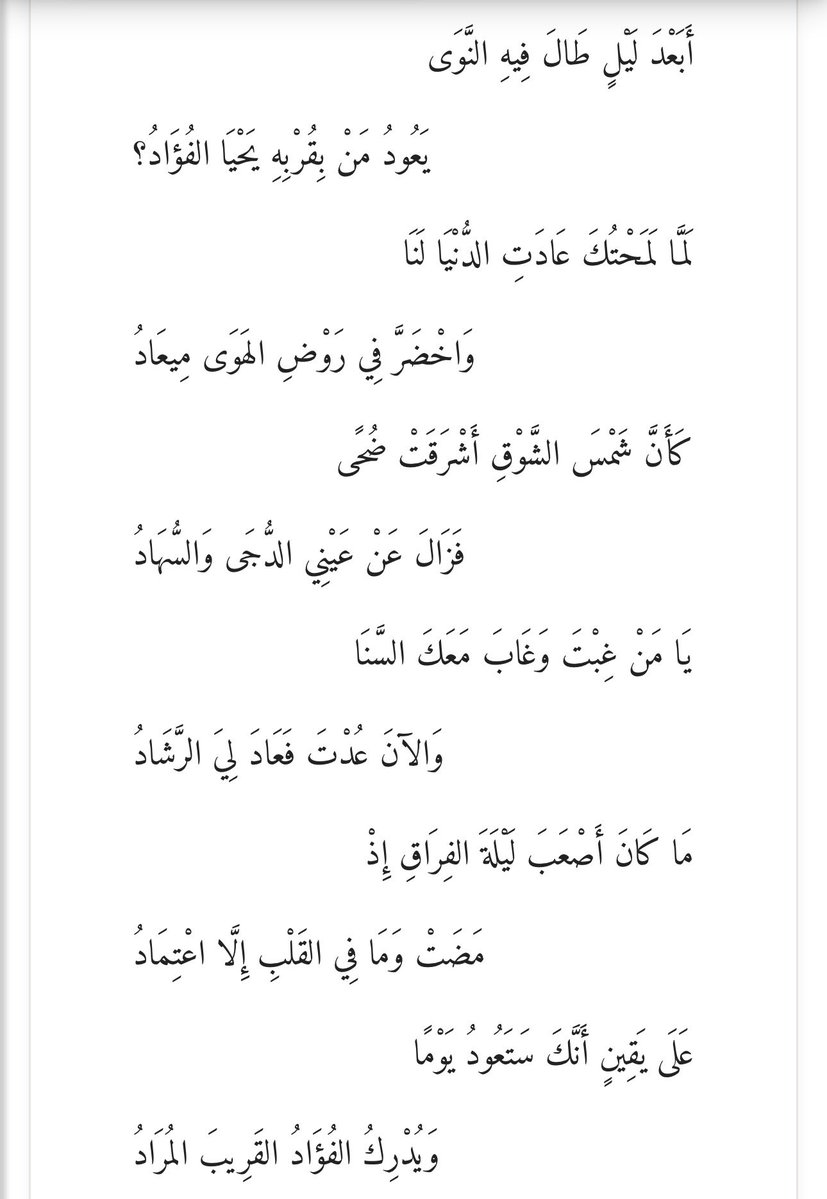 أَبَعْدَ لَيْلٍ طَالَ فِيهِ النَّوَى
يَعُودُ مَنْ بِقُرْبِهِ يَحْيَا الفُؤَادُ؟
لَمَّا لَمَحْتُكَ عَادَتِ الدُّنْيَا لَنَا
وَاخْضَرَّ فِي رَوْضِ الهَوَى مِيعَادُ
كَأَنَّ شَمْسَ الشَّوْقِ أَشْرَقَتْ ضُحًى
فَزَالَ عَنْ عَيْنِي الدُّجَى وَالسُّهَادُ
يَا مَنْ غِبْتَ وَغَابَ مَعَكَ السَّنَا
وَالآنَ عُدْتَ فَعَادَ لِيَ الرَّشَادُ
مَا كَانَ أَصْعَبَ لَيْلَةَ الفِرَاقِ إِذْ
مَضَتْ وَمَا فِي القَلْبِ إِلَّا اعْتِمَادُ
عَلَى يَقِينٍ أَنَّكَ سَتَعُودُ يَوْمًا
وَيُدْرِكُ الفُؤَادُ القَرِيبَ المُرَادُ